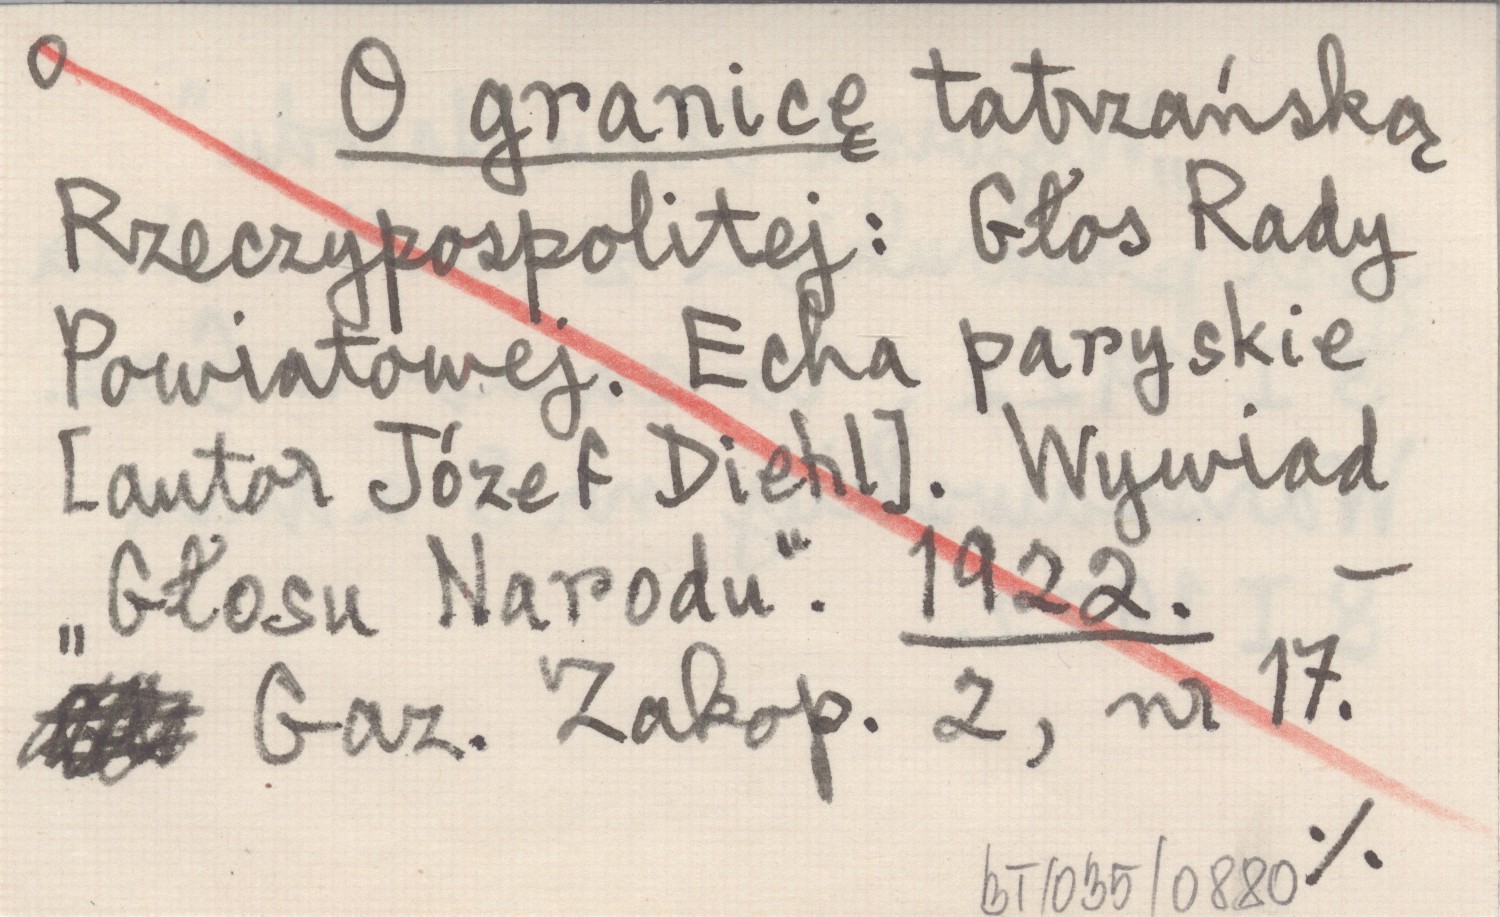 O O granicę tatrzańską
Rzeczypospolitej: Głos Rady
Powiatowej. Echa paryskie
[autor Józef Diehl]. Wywiad
„Głosu Narodu". 1922. –
Gaz. Zakop. 2, nr 17.
·/.
BT/035/0880